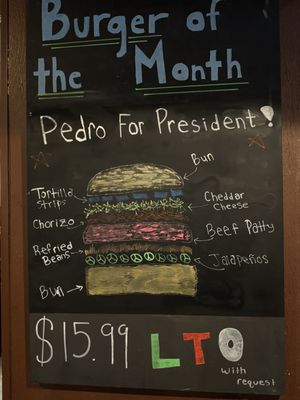 Burger of
the Month
Pedro For President!
Bun
Tortilla
Strips
Cheddar
Cheese
Chorizo
Beef Patty
Refried
Beans
Jalapeños
Bun
$15.99 LTO
with
request